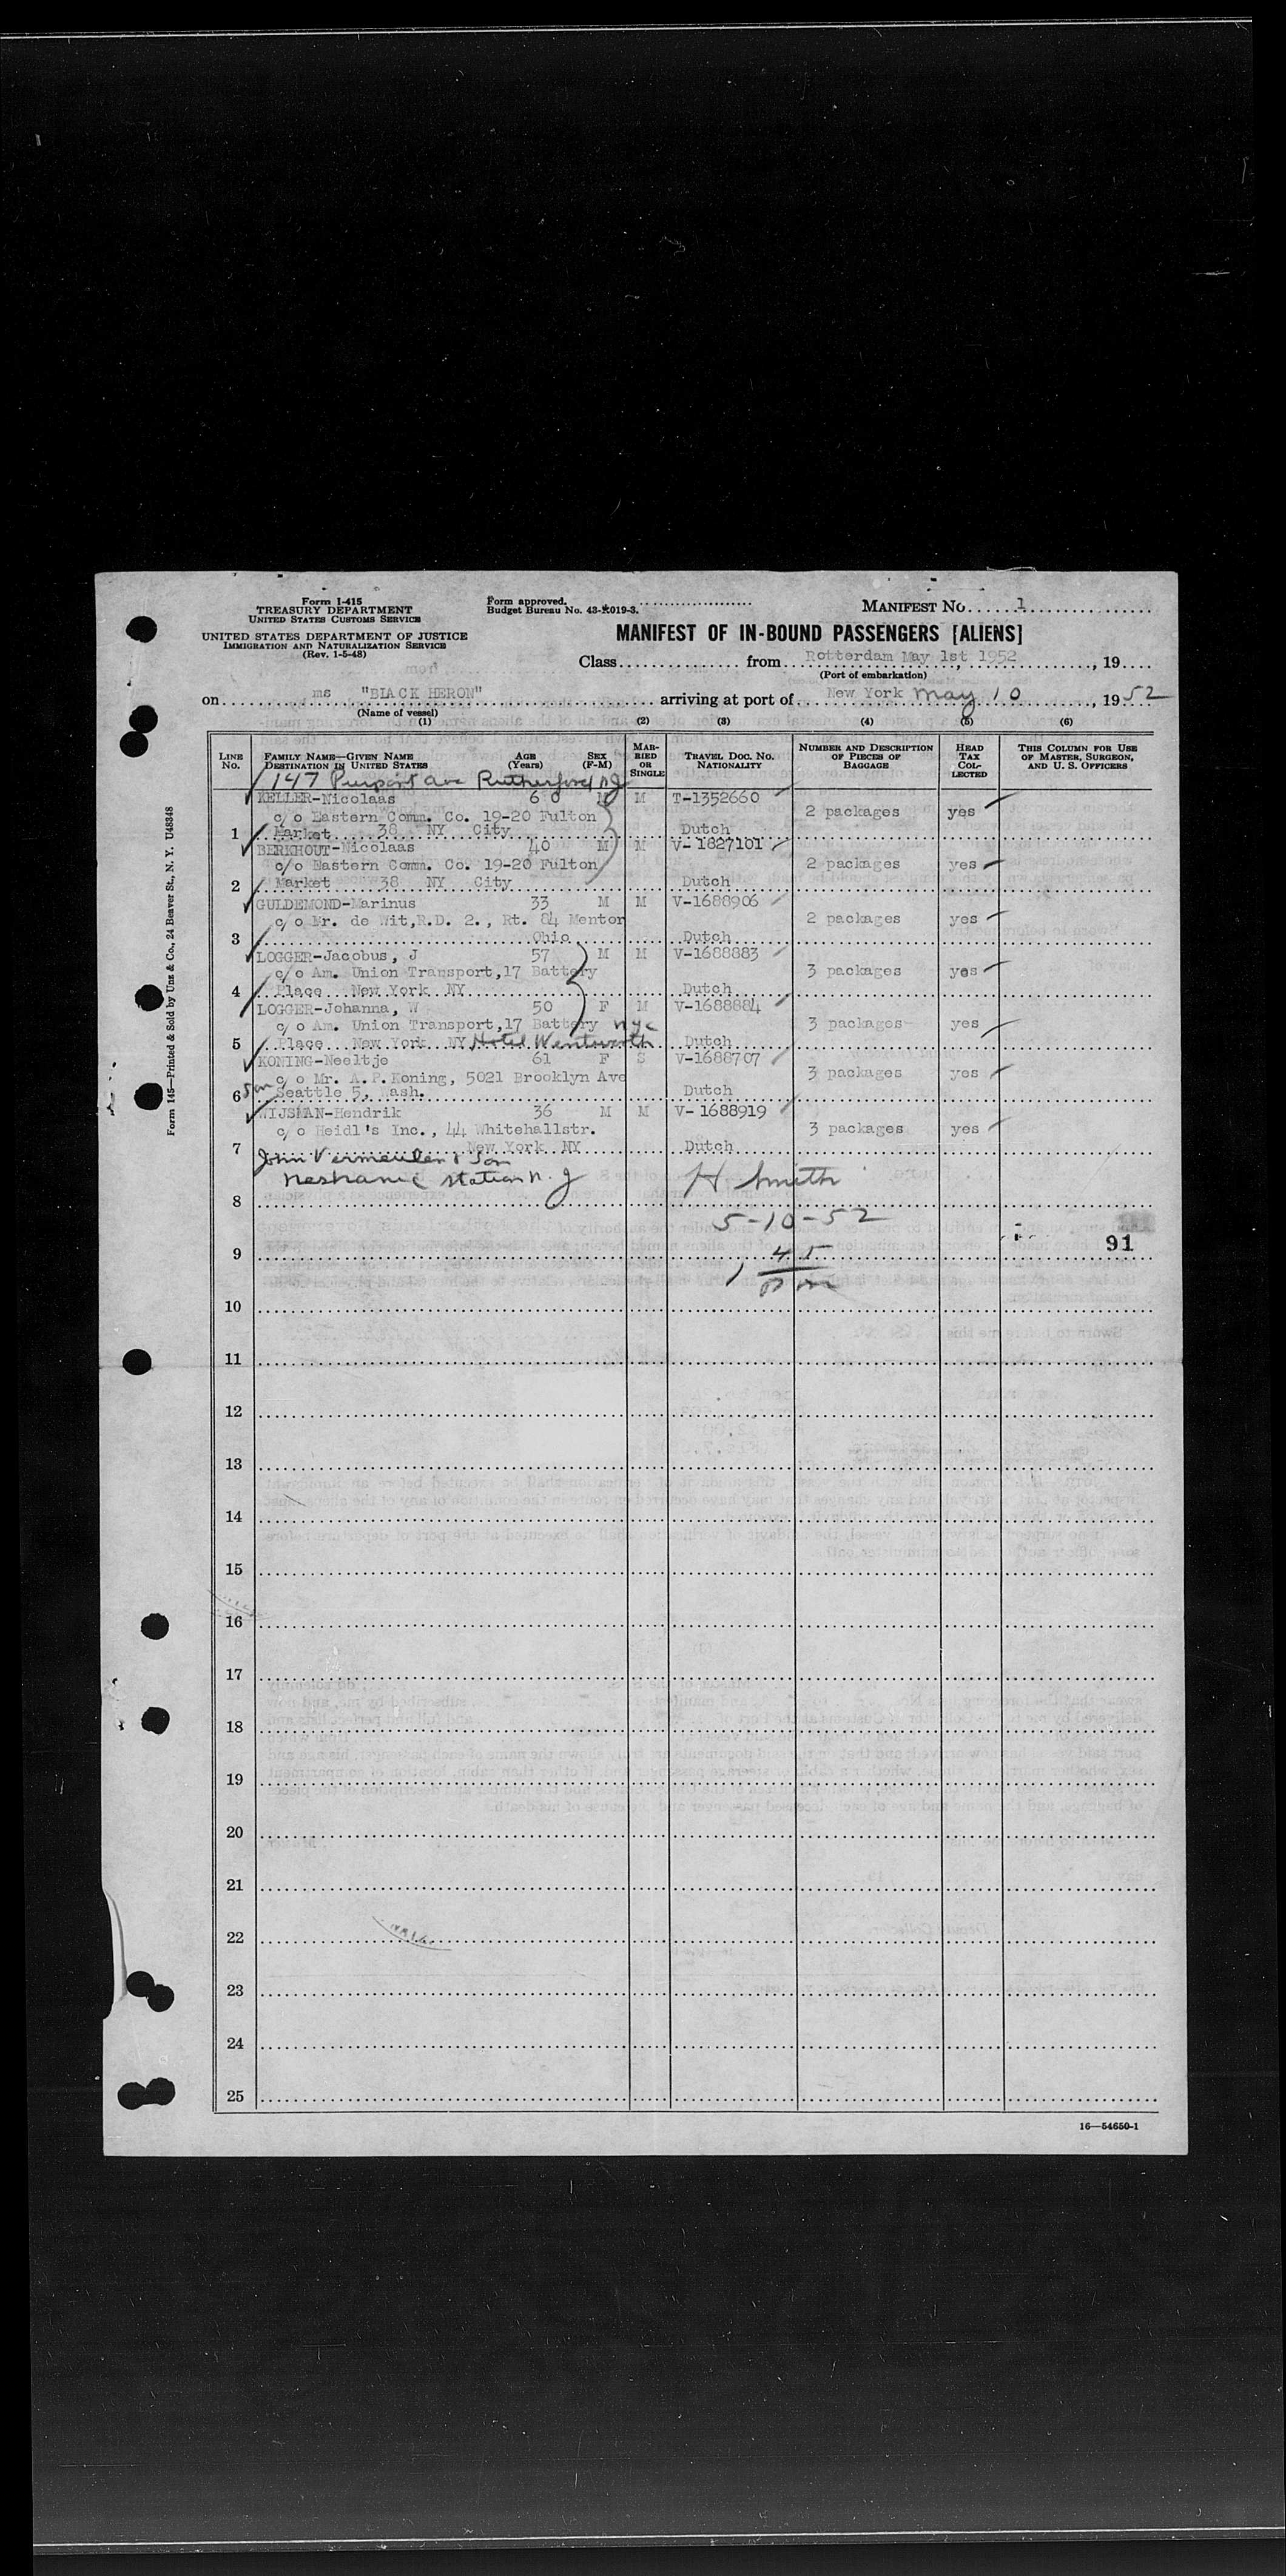 Form I-415
TREASURY DEPARTMENT
UNITED STATES CUSTOMS SERVICE
UNITED STATES DEPARTMENT OF JUSTICE
IMMIGRATION AND NATURALIZATION SERVICE
(Rev. 1-5-48)
Form approved.
Budget Bureau No. 43-R019-3.
MANIFEST NO. 1
MANIFEST OF IN-BOUND PASSENGERS [ALIENS]
Class from Rotterdam May 1st 1952, 19
(Port of embarkation)
on ms "BLACK HERON" arriving at port of New York May 10, 1952
(Name of vessel)
(1) (2) (3) (4) (5) (6)
LINE NO.
FAMILY NAME—GIVEN NAME AGE (YEARS) SEX (F-M)
DESTINATION IN UNITED STATES
MARRIED OR SINGLE
TRAVEL DOC. NO. NATIONALITY
NUMBER AND DESCRIPTION OF PIECES OF BAGGAGE
HEAD TAX COLLECTED
THIS COLUMN FOR USE OF MASTER, SURGEON, AND U. S. OFFICERS
147 Ave Rutherford NJ
KELLER-Nicolaas 60 M M T-1352660
c/o Eastern Comm. Co. 19-20 Fulton 2 packages yes
1 Market 38 NY City Dutch
BERKHOUT-Nicolaas 40 M M V-1827101
c/o Eastern Comm. Co. 19-20 Fulton 2 packages yes
2 Market 38 NY City Dutch
GULDEMOND-Marinus 33 M M V-1688906
c/o Mr. de Wit,R.D. 2., Rt. 84 Mentor 2 packages yes
3 Ohio Dutch
LOGGER-Jacobus, J 57 M M V-1688883
c/o Am. Union Transport,17 Battery 3 packages yes
4 Place New York NY Dutch
LOGGER-Johanna, W 50 F M V-1688884
c/o Am. Union Transport,17 Battery nyc 3 packages yes
5 Place New York NY Hotel Wentworth Dutch
KONING-Neeltje 61 F S V-1688707
c/o Mr. A.P.Koning, 5021 Brooklyn Ave 3 packages yes
6 son Seattle 5, Wash. Dutch
WIJSMAN-Hendrik 36 M M V-1688919
c/o Heidl's Inc., 44 Whitehallstr. 3 packages yes
7 New York NY Dutch
John Vermeulen & Son
Neshanic Station N.J H Smith
8
5-10-52
9 45 91
10
11
12
13
14
15
16
17
18
19
20
21
22
23
24
25
16—54650-1
Form 145—Printed & Sold by Unz & Co., 24 Beaver St., N. Y. U48348